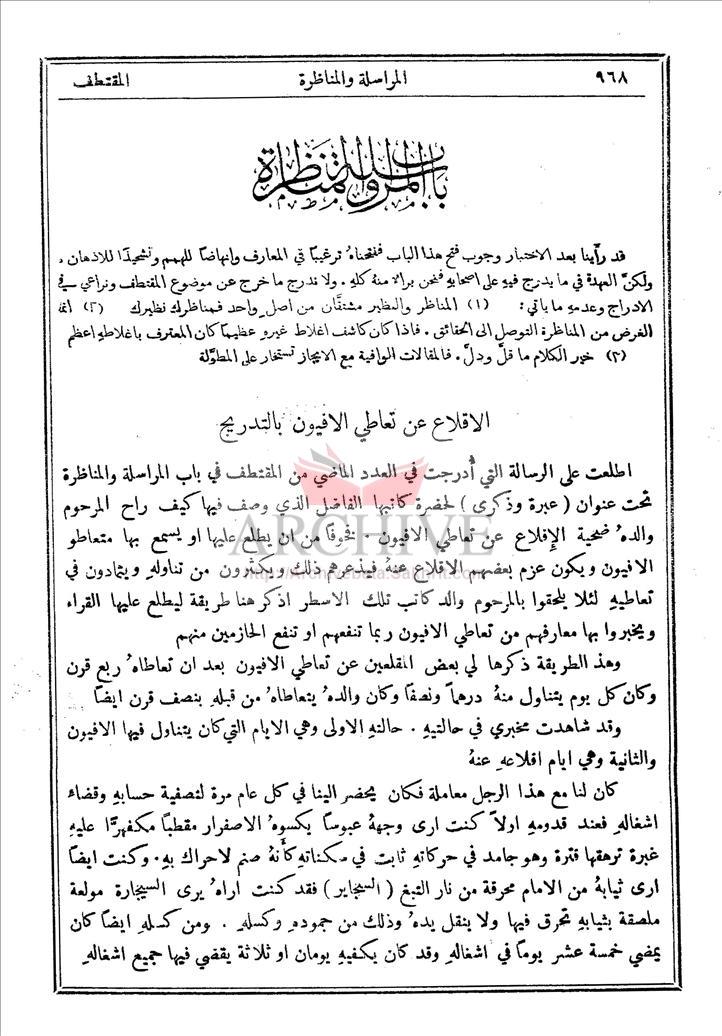 ٩٦٨ المراسلة والمناظرة المقتطف
باب المراسلة والمناظرة
قد رأينا بعد الاختبار وجوب فتح هذا الباب ففتحناهُ ترغيبًا في المعارف وانهاضًا للهمم وتشحيذًا للاذهان .
ولكنَّ العهدة في ما يدرج فيهِ على اصحابهِ فنحن براء منهُ كلهِ . ولا ندرج ما خرج عن موضوع المقتطف ونراعي في
الادراج وعدمهِ ما يأتي : (١) المناظر والنظير مشتقَّان من اصل واحد فمناظرك نظيرك (٢) انما
الغرض من المناظرة التوصل الى الحقائق . فاذا كان كاشف اغلاط غيرهِ عظيمًا كان المعترف باغلاطهِ اعظم
(٣) خير الكلام ما قلَّ ودلَّ . فالمقالات الوافية مع الايجاز تستخار على المطوَّلة
الاقلاع عن تعاطي الافيون بالتدريج
اطلعت على الرسالة التي أُدرجت في العدد الماضي من المقتطف في باب المراسلة والمناظرة
تحت عنوان ( عبرة وذكرى ) لحضرة كاتبها الفاضل الذي وصف فيها كيف راح المرحوم
والدهُ ضحية الإقلاع عن تعاطي الافيون . فخوفًا من ان يطلع عليها او يسمع بها متعاطو
الافيون ويكون عزم بعضهم الاقلاع عنهُ فيذعرهم ذلك ويكثرون من تناولهِ ويتمادون في
تعاطيهِ لئلا يلحقوا بالمرحوم والد كاتب تلك الاسطر اذكر هنا طريقة ليطلع عليها القراء
ويخبروا بها معارفهم من تعاطي الافيون ربما تنفعهم او تنفع الحازمين منهم
وهذ الطريقة ذكرها لي بعض المقلعين عن تعاطي الافيون بعد ان تعاطاهُ ربع قرن
وكان كل يوم يتناول منهُ درهمًا ونصفًا وكان والدهُ يتعاطاهُ من قبلهِ بنصف قرن ايضًا
وقد شاهدت مخبري في حالتيهِ . حالتهِ الاولى وهي الايام التي كان يتناول فيها الافيون
والثانية وهي ايام اقلاعهِ عنهُ
كان لنا مع هذا الرجل معاملة فكان يحضر الينا في كل عام مرة لتصفية حسابهِ وقضاء
اشغالهِ فعند قدومهِ اولاً كنت ارى وجههُ عبوسًا يكسوهُ الاصفرار مقطبًا مكفهرًّا عليهِ
غبرة ترهقها قترة وهو جامد في حركاتهِ ثابت في سكناتهِ كأنهُ صنم لاحراك بهِ . وكنت ايضًا
ارى ثيابهُ من الامام محرقة من نار التبغ ( السيجاير ) فقد كنت اراهُ يرى السيجارة مولعة
ملصقة بثيابهِ تحرق فيها ولا ينقل يدهُ وذلك من جمودهِ وكسلهِ . ومن كسلهِ ايضًا كان
يمضي خمسة عشر يومًا في اشغالهِ وقد كان يكفيهِ يومان او ثلاثة يقضي فيها جميع اشغالهِ
ARCHIVE